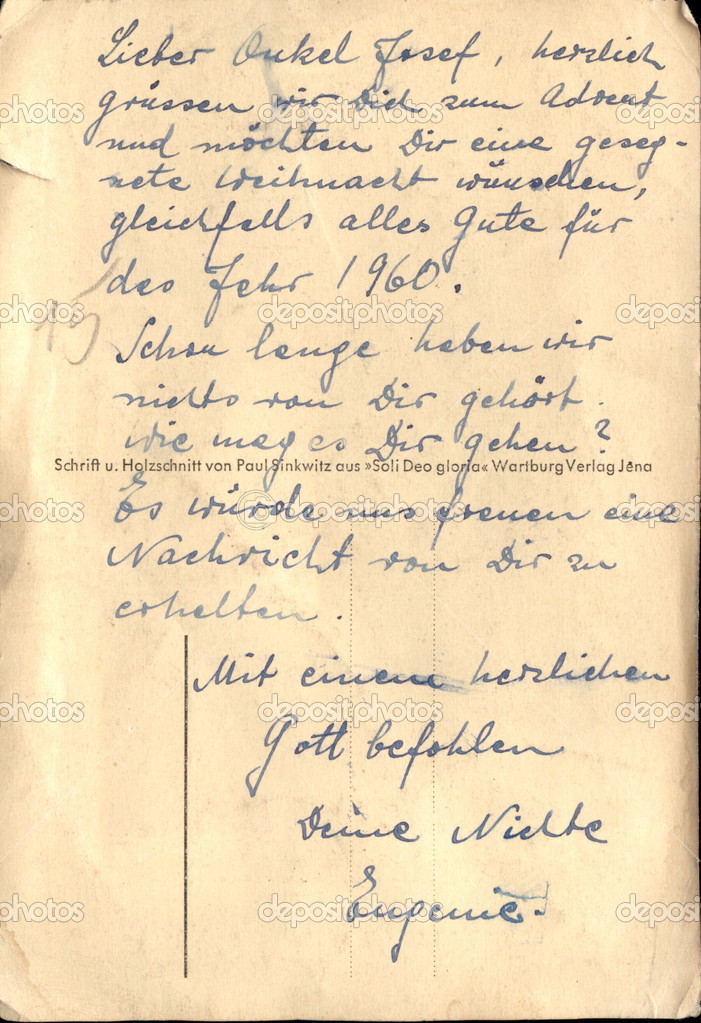 Lieber Onkel Josef, herzlich
grüssen wir Dich zum Advent
und möchten Dir eine geseg-
nete Weihnacht wünschen,
gleichfalls alles Gute für
das Jahr 1960.
Schon lange haben wir
nichts von Dir gehört.
Wie mag es Dir gehen?
Schrift u. Holzschnitt von Paul Sinkwitz aus »Soli Deo gloria« Wartburg Verlag Jena
Es würde uns freuen eine
Nachricht von Dir zu
erhalten.
Mit einem herzlichen
Gott befohlen
Deine Nichte
Eugenie.
depositphotos